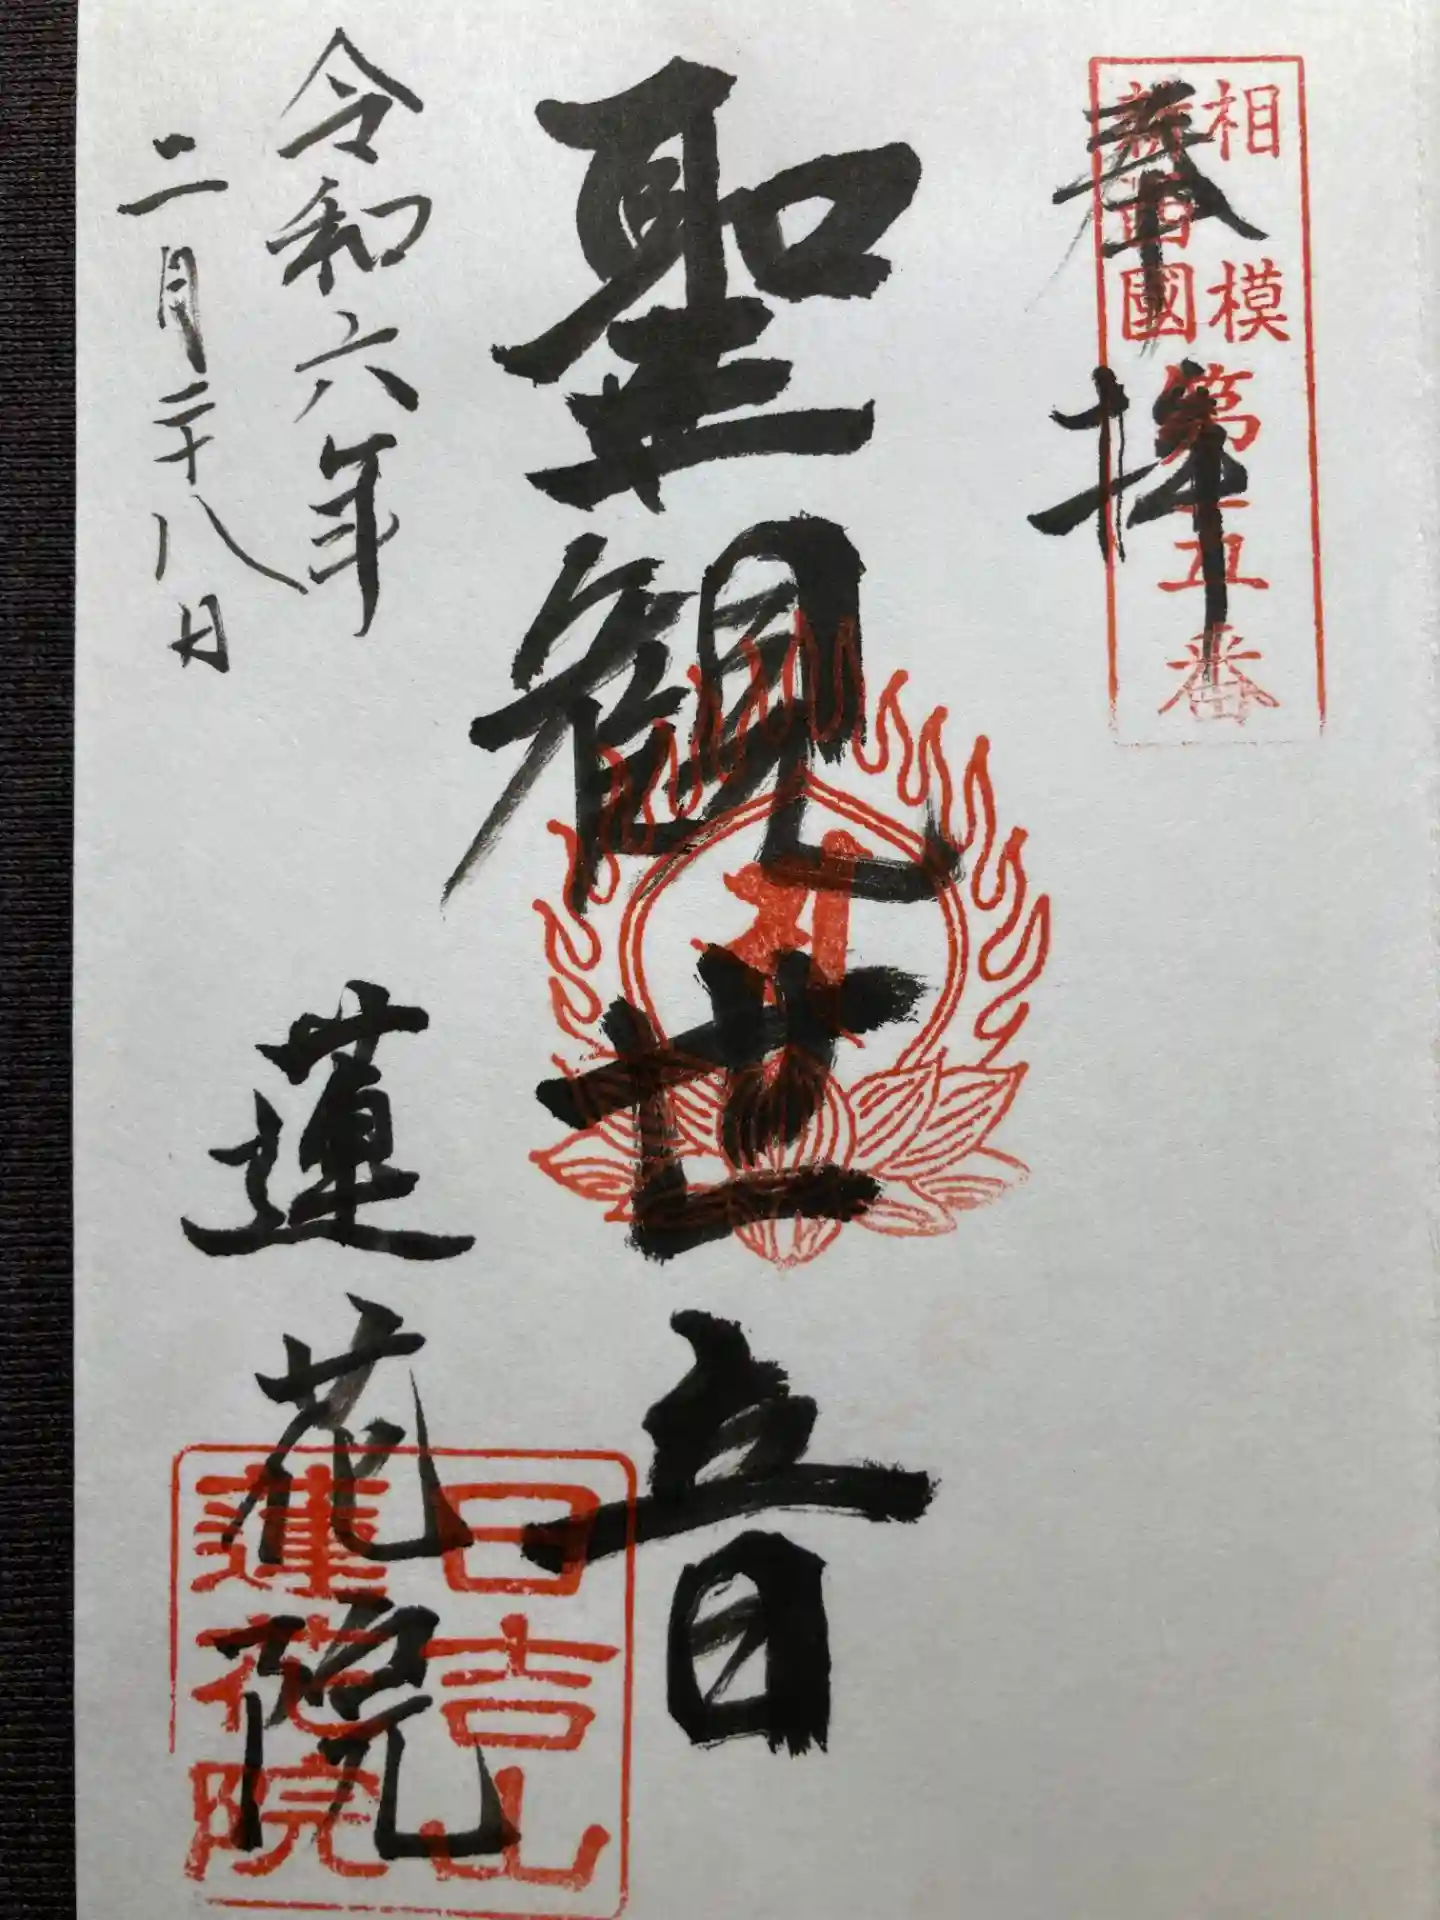 奉拝
相模
新西國
第十五番
聖観世音
令和六年
二月二十八日
蓮花院
日吉山
蓮花院